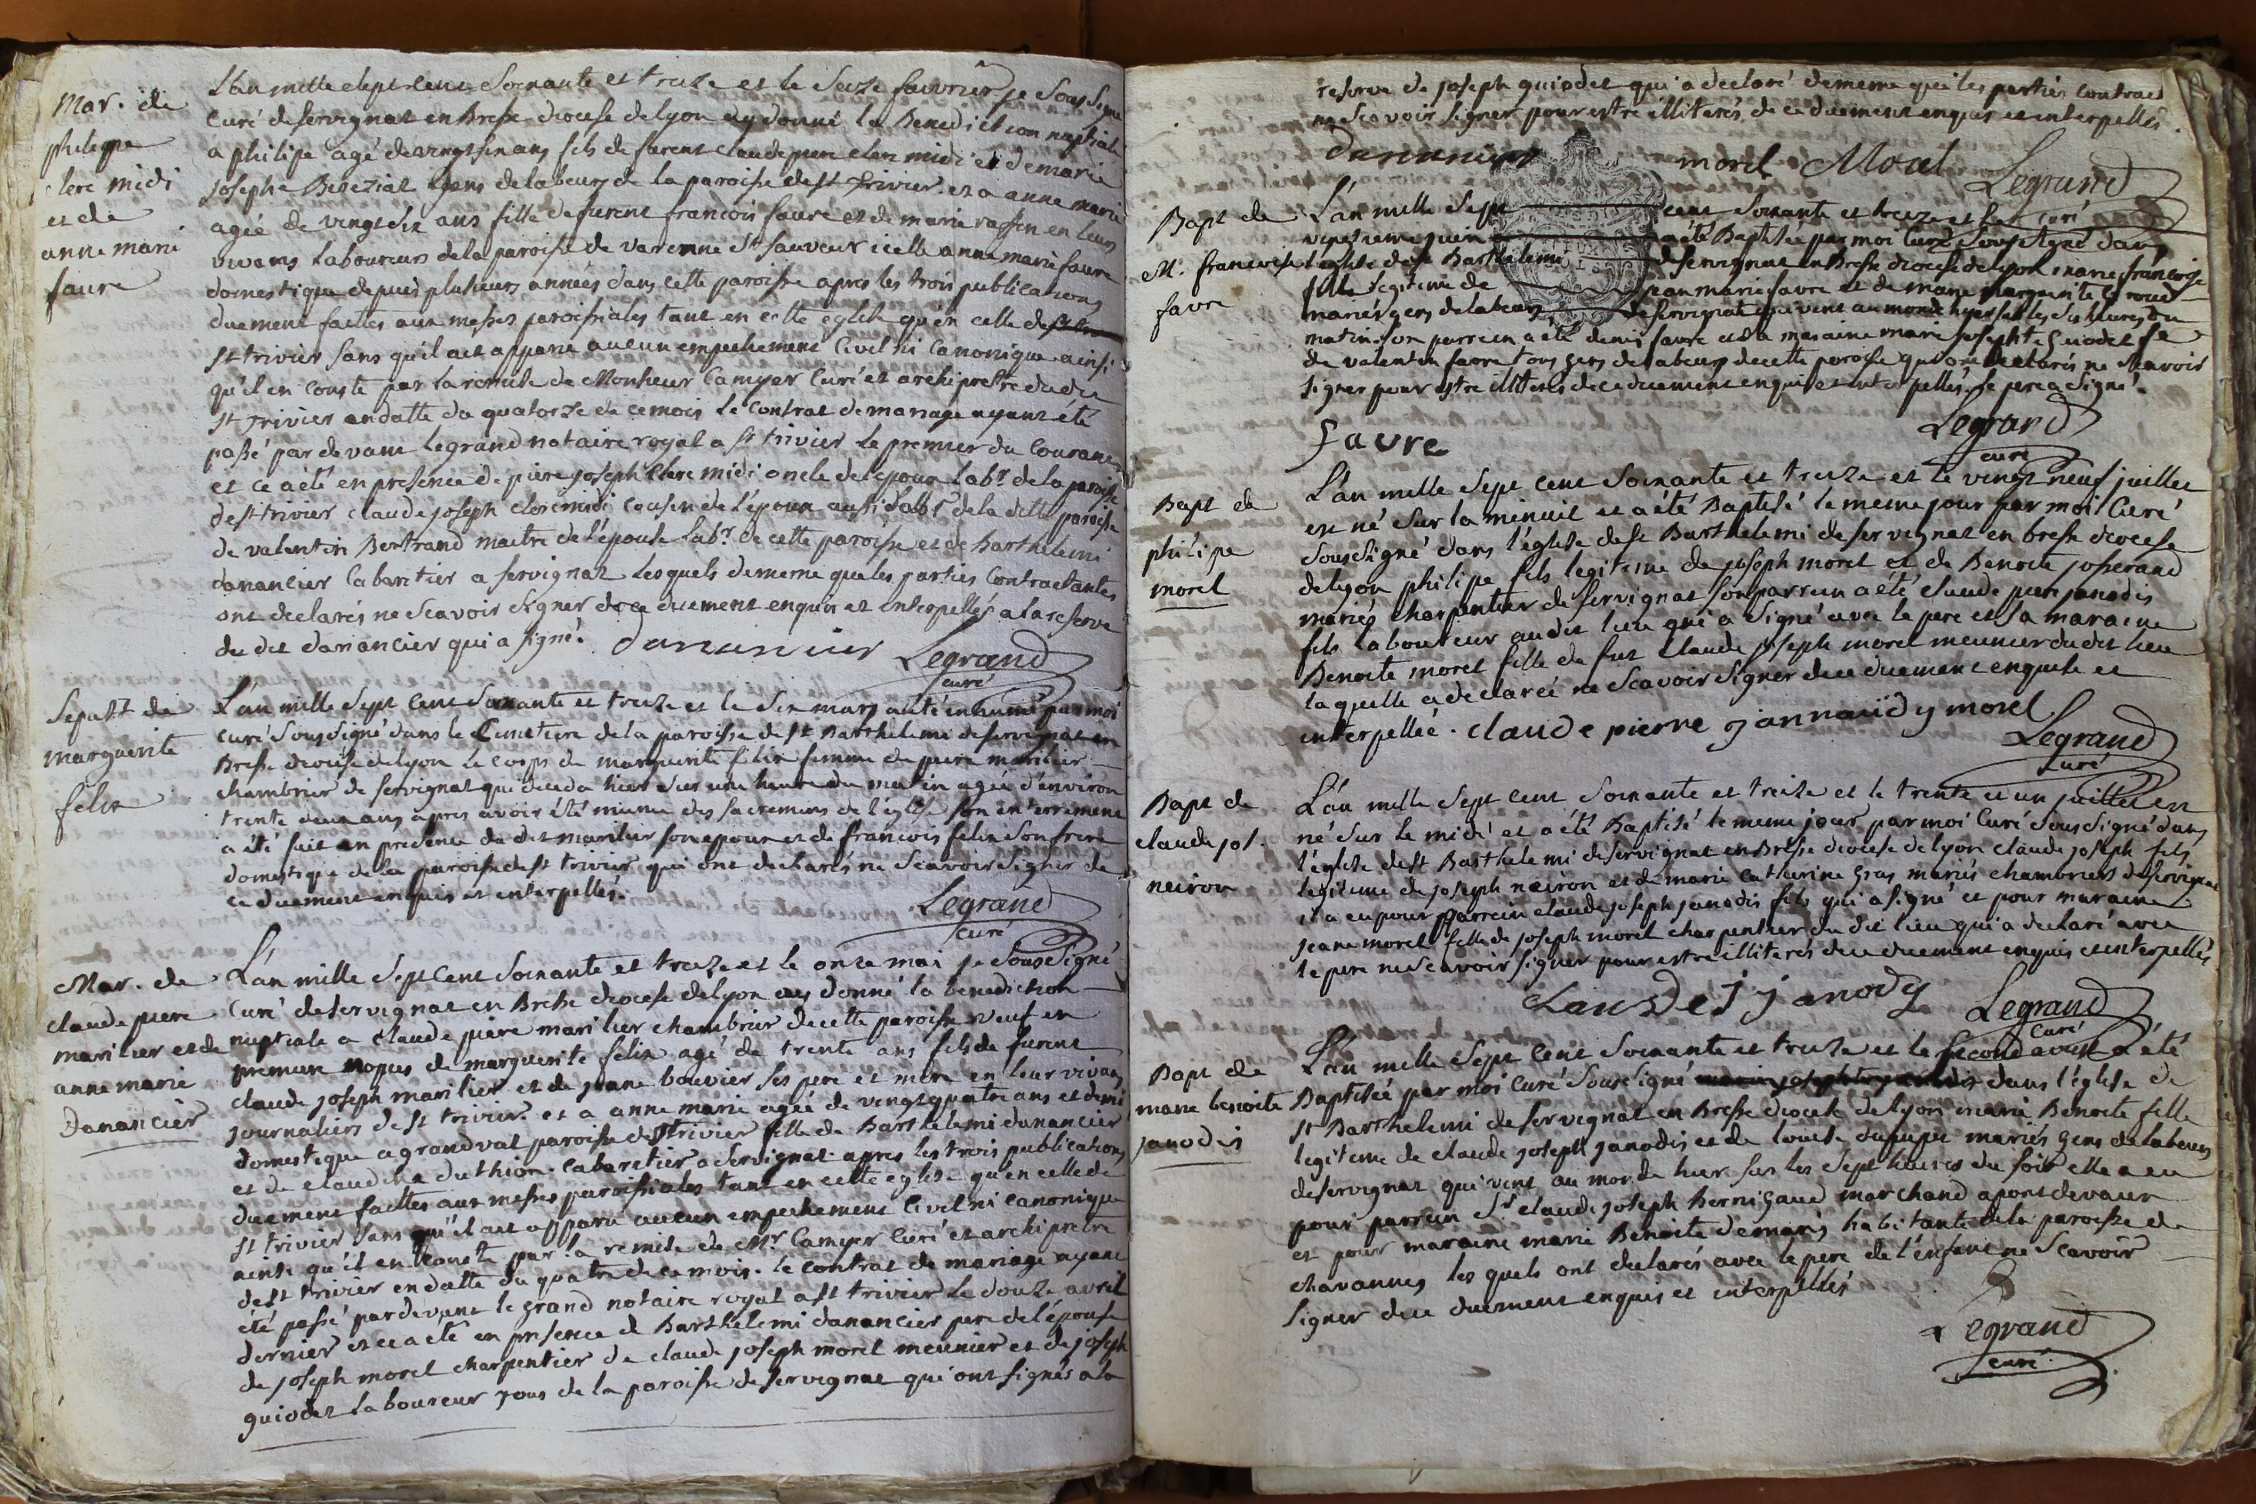 Mar. de
philippe
clerc midi
et de
anne marie
faure
L'an mille sept cent soixante et treize et le seize favvrier je sous signé
curé de servignat en Bresse diocese de lyon ay donné la Benediction nuptiale
a philipe agé de vingt cin ans fils de furent claude piere clerc midi et de marie
josephe Bereziat gens de labeur de la paroisse de st trivier et a anne marie
agée de vingt six ans fille de furent francois faure et de marie raffin en leurs
vivants laboureurs de la paroisse de varenne st sauveur icelle anne marie faure
domestique depuis plusieurs années dans cette paroisse apres les trois publications
duement faittes aux messes paroissiales tant en cette eglise qu'en celle de
st trivier sans qu'il ait apparu aucun empechement civil ni canonique ainsi
qu'il en conste par la remise de Monsieur Camyer curé et archipretre du dit
st trivier en datte du quatorze de ce mois le contrat de mariage ayant été
passé par devant legrand notaire royal a st trivier le premier du courant
et ce a été en presence de piere joseph clerc midi oncle de l'epoux labr. de la paroisse
de st trivier claude joseph clerc midi cousin de l'époux aussi labr. de la ditte paroisse
de valentin Bertrand maitre de l'épouse labr. de cette paroisse et de barthelemi
danancier cabaretier a servignat lesquels de meme que les parties contractantes
ont declarés ne scavoir signer de ce duement enquis et interpellés a la reserve
du dit danancier qui a signé. danancier Legrand
curé
Sepult de
marguerite
felix
L'an mille sept cent soixante et treize et le six mars a été inhumé par moi
curé soussigné dans le Cimetiere de la paroisse de st Barthelemi de servignat en
Bresse diocése de lyon le corps de marguerite felix femme de piere marilier
chambrier de servignat qui deceda hier sur une heure du matin agée d'environ
trente deux ans apres avoir été munie des sacremens de l'église son enterrement
a été fait en presence du dit marilier son epoux et de francois felix son frere
domestique de la paroisse de st trivier qui ont declarés ne scavoir signer de
ce duement enquis et interpellés.
Legrand
curé
Mar. de
claude piere
marilier et de
anne marie
Danancier
L'an mille sept cent soixante et treize et le onze mai je soussigné
curé de servignat en Bresse diocese de lyon ay donné la benediction
nuptiale a claude piere marilier chambrier de cette paroisse veuf en
premiere nopces de marguerite felix agé de trente ans fils de furent
claude joseph marilier et de jeane bouvier ses pere et mere en leur vivans
journaliers de st trivier et a anne marie agée de vingt quatre ans et demi
domestique a grandval paroisse de st trivier fille de Barthélemi danancier
et de claudine duthion cabaretier a servignat apres les trois publications
duement faittes aux messes paroissiales tant en cette eglise qu'en celle de
st trivier sans qu'il ait apparu aucun empechement civil ni canonique
ainsi qu'il en conste par la remise de Mr. Camyer curé et archipretre
de st trivier en datte du quatre de ce mois. le contrat de mariage ayant
été passé pardevant legrand notaire royal a st trivier le douze avril
dernier et ce a été en presence de Barthelemi danancier pere de l'épouse
de joseph morel charpentier de claude joseph morel meunier et de joseph
guiodet laboureur tous de la paroisse de servignat qui ont signés a la
reserve de joseph guiodet qui a declaré de meme que les parties contract
ne scavoir signer pour estre illiterés de ce duement enquis et interpellés.
danancier morel Morel Legrand
curé
Bapt de
M. francoise
favre
L'an mille sept cent soixante et treize et le
vingtieme juin a été Baptisée par moi curé soussigné dans
l'eglise de st Barthelemi de servignat en Bresse diocese de lyon marie francoise
fille legitime de jean marie favre et de marie marguerite
mariés gens de labeur de servignat qui vint au monde hyer sur les dix heures du
matin son parrein a été denis favre et la maraine marie josephte guiodet fe
de valentin favre tous gens de labeur de cette paroisse qui ont declarés ne scavoir
signer pour estre illiterés de ce duement enquis et interpellés. le pere a signé.
favre
Legrand
curé
Bapt de
philipe
morel
L'an mille sept cent soixante et treize et le vingt neuf juillet
est né sur la minuit et a été Baptisé le meme jour par moi curé
soussigné dans l'église de st Barthelemi de servignat en bresse diocese
de lyon philipe fils legitime de joseph morel et de Benoite josserand
mariés charpentier de servignat son parrein a été claude piere janodis
fils laboureur au dit lieu qui a signé avec le pere et sa maraine
Benoite morel fille de fut claude joseph morel meunier du dit lieu
laquelle a declarée ne scavoir signer de ce duement enquise et
interpellée. claude pierre jannaudy morel
Legrand
curé
Bapt de
claude jos.
neiron
L'an mille sept cent soixante et treize et le trente et un juillet est
né sur le midi et a été Baptisé le meme jour par moi curé soussigné dans
l'église de st Barthelemi de servignat en Bresse diocese de lyon claude joseph fils
legitime de joseph neiron et de marie catherine gras mariés chambriers de servignat
il a eu pour parrein claude joseph janodis fils qui a signé et pour maraine
jeane morel fille de joseph morel charpentier du dit lieu qui a declaré avec
le pere ne scavoir signer pour estre illiterés de ce duement enquis et interpellés.
clausde j janody Legrand
curé
Bapt de
marie benoite
janodis
L'an mille sept cent soixante et treize et le second aout a été
Baptisée par moi curé soussigné dans l'église de
st Barthelemi de servignat en Bresse diocese de lyon marie Benoite fille
legitime de claude joseph janodis et de louise dupupet mariés gens de labeur
de servignat qui vint au monde hier sur les sept heures du soir elle a eu
pour parrein sr claude joseph Bernigaud marchand a pont de vaux
et pour maraine marie Benoite demaris habitante de la paroisse de
chavannes les quels ont declarés avec le pere de l'enfant ne scavoir
signer de ce duement enquis et interpellés
Legrand
curé.